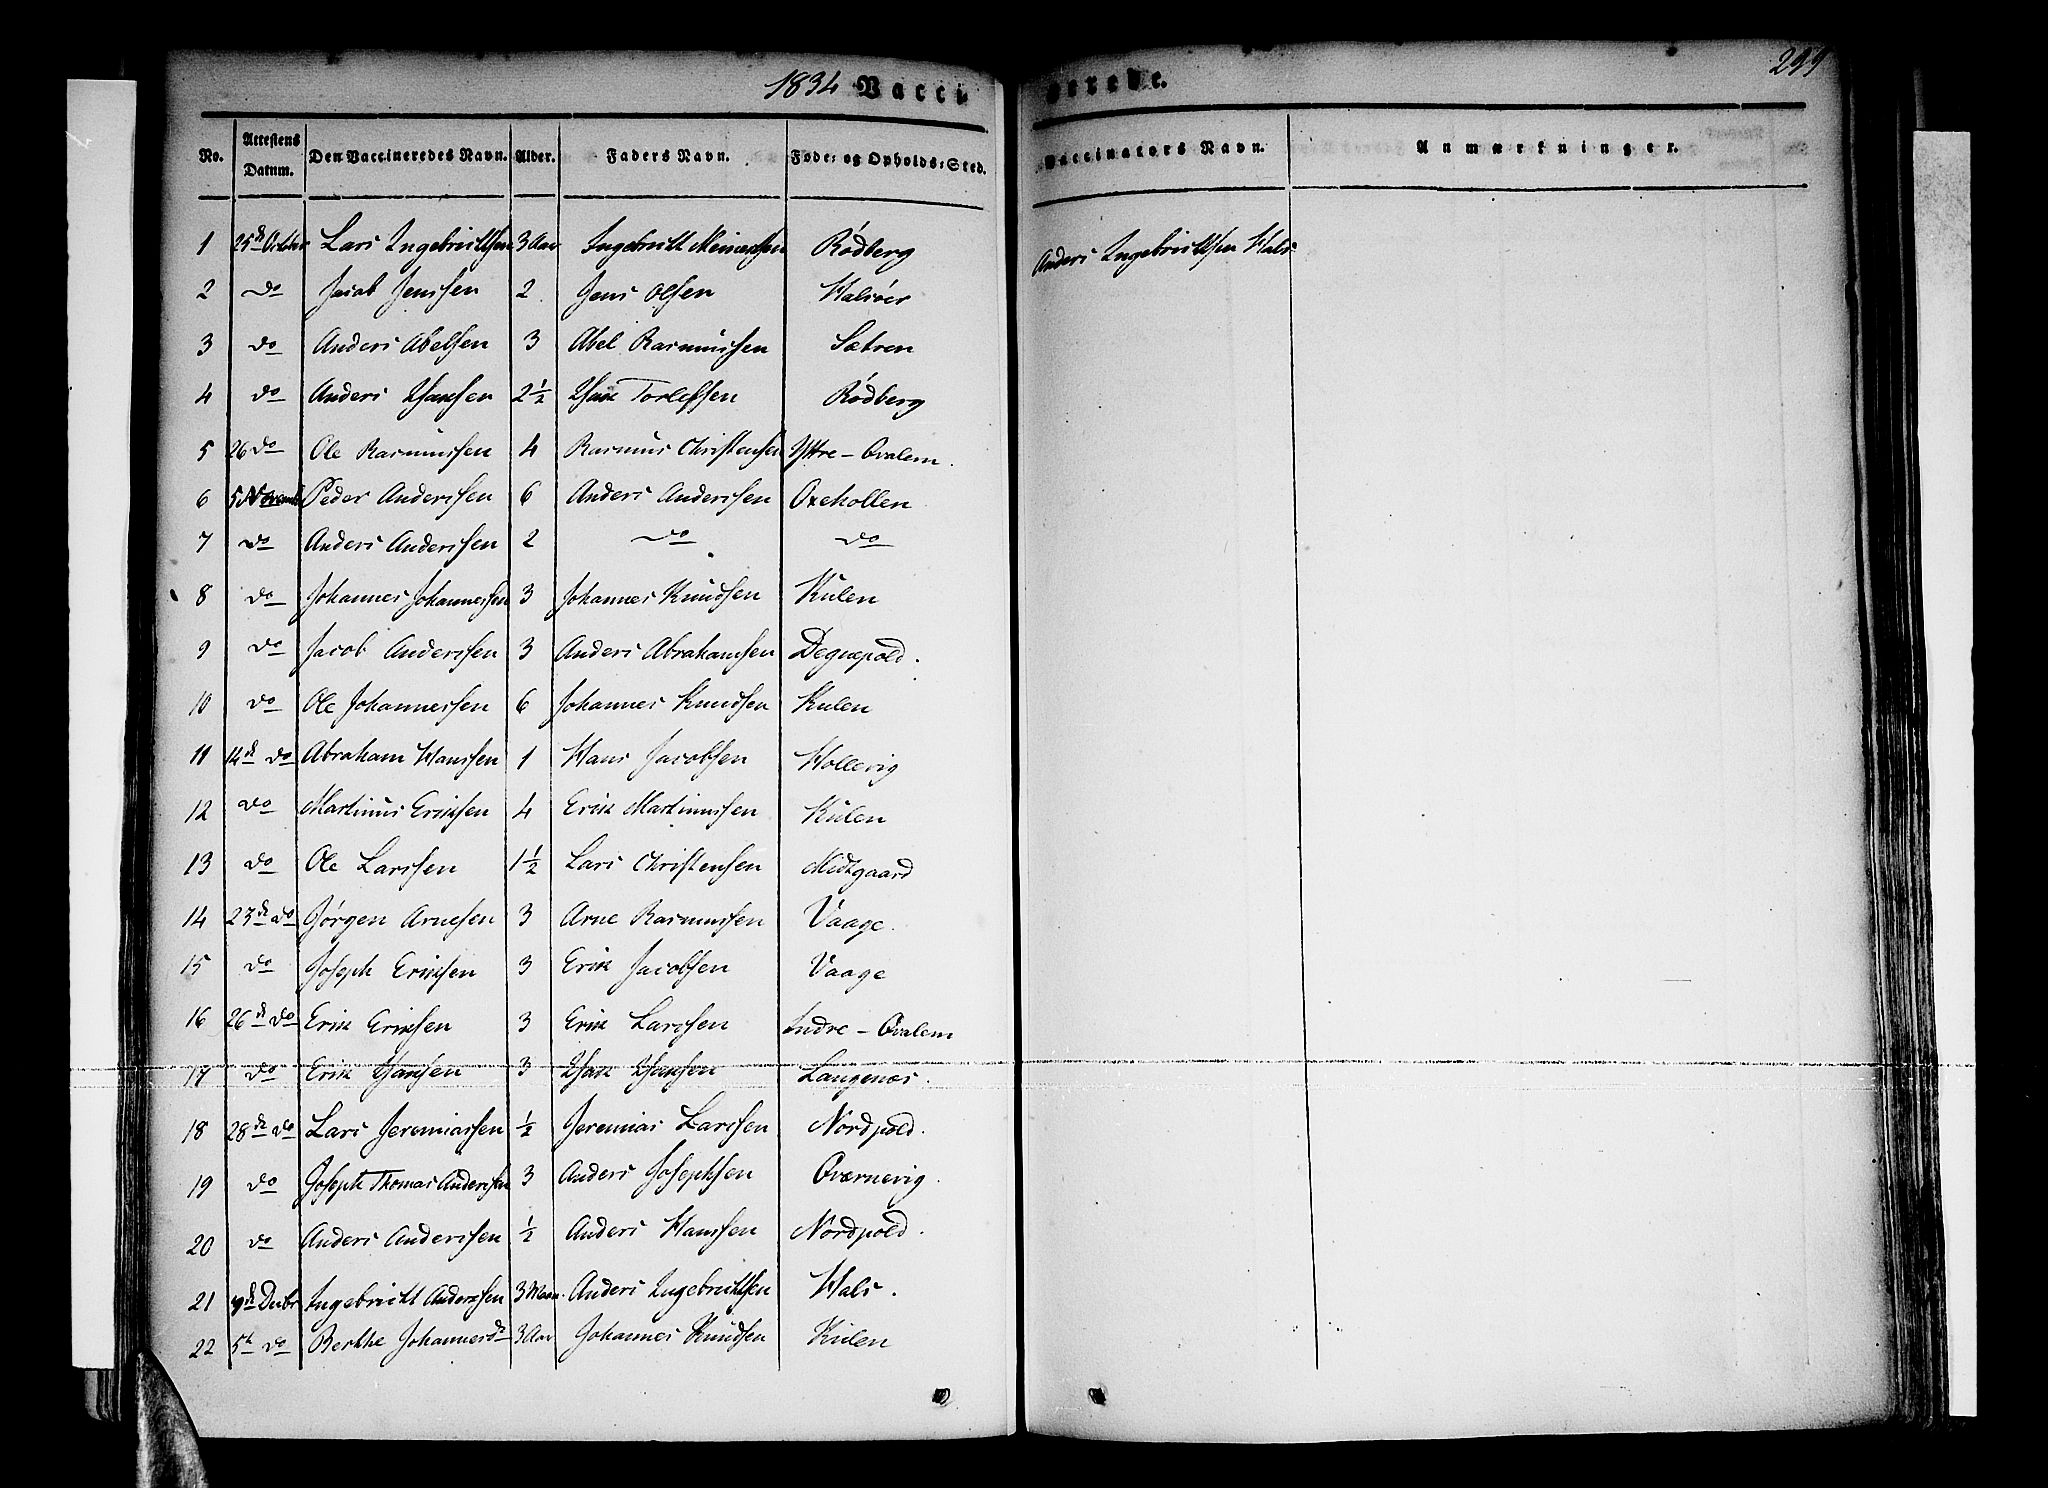 1834 Vaccinerede. 299
No. Attestens Datum. Den Vaccineredes Navn. Alder. Faders Navn. Føde- og Opholds-Sted. Vaccinators Navn. Anmærkninger.
1 25de October Lars Ingebrichtsen 3 Aar Ingebricht Reinertsen Rødberg Anders Ingebrichtsen Hals
2 do Jacob Jenssen 2 Jens Olsen Halsøer
3 do Anders Abelsen 3 Abel Rasmussen Sætren
4 do Anders Isaksen 2½ Isak Torlefsen Rødberg
5 26 do Ole Rasmussen 4 Rasmus Christensen Yttre-Qvalem.
6 5 November Peder Anderssen 6 Anders Anderssen Oxehollen
7 do Anders Anderssen 2 do do
8 do Johannes Johannessen 3 Johannes Knudsen Kulen
9 do Jacob Anderssen 3 Anders Abrahamsen Degnepold.
10 do Ole Johannessen 6 Johannes Knudsen Kulen
11 14de do Abraham Hanssen 1 Hans Jacobsen Hollevig
12 do Martinus Eriksen 4 Erik Martinussen Kulen
13 do Ole Larssen 1½ Lars Christensen Midtgaard
14 23de do Jørgen Arnesen 3 Arne Rasmussen Vaage.
15 do Joseph Eriksen 3 Erik Jacobsen Vaage
16 26de do Erik Eriksen 3 Erik Larssen Indre-Qvalem
17 do Erik Isaksen 3 Isak Isaksen Langenæs.
18 28de do Lars Jeremiassen ½ Jeremias Larssen Nordpold.
19 do Joseph Thomas Anderssen 3 Anders Josephsen Qvernevig.
20 do Anders Anderssen ½ Anders Hanssen Nordpold.
21 de Decbr Ingebricht Anderssen 3 Maan. Anders Ingebrichtsen Hals.
22 5te do Berthe Johannesdr 3 Aar Johannes Knudsen Kulen